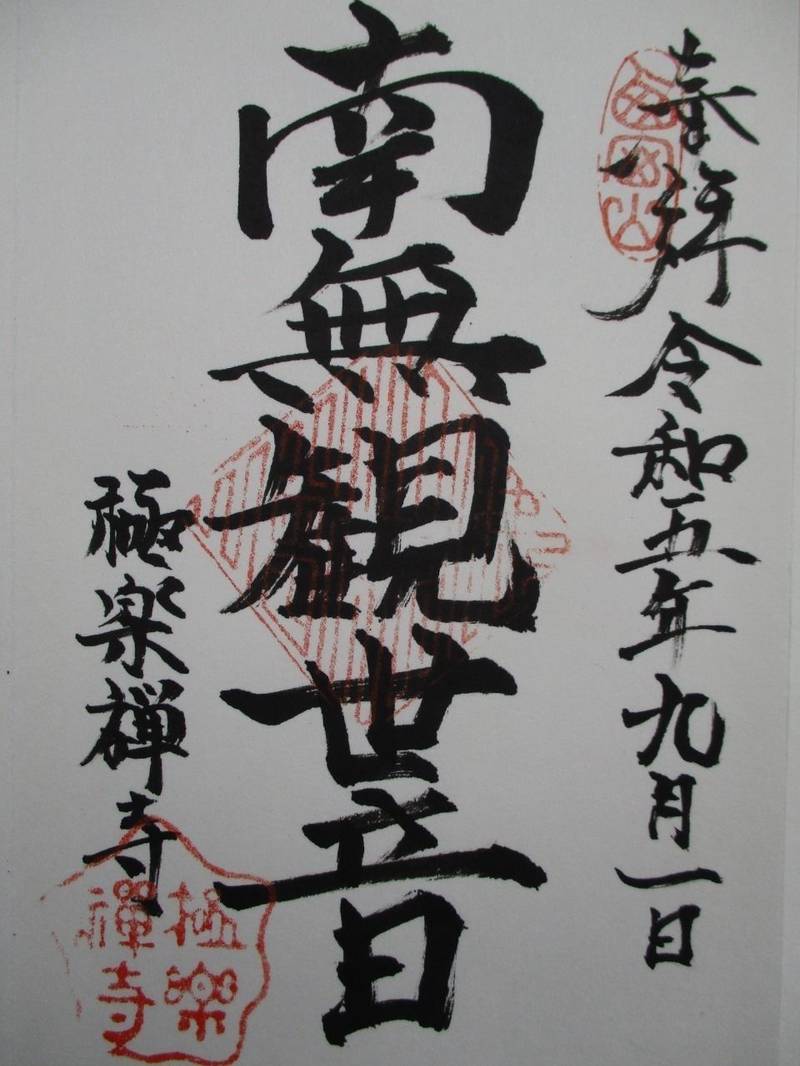 奉拝 令和五年九月一日
南無観世音
極楽禅寺
極楽
禅寺